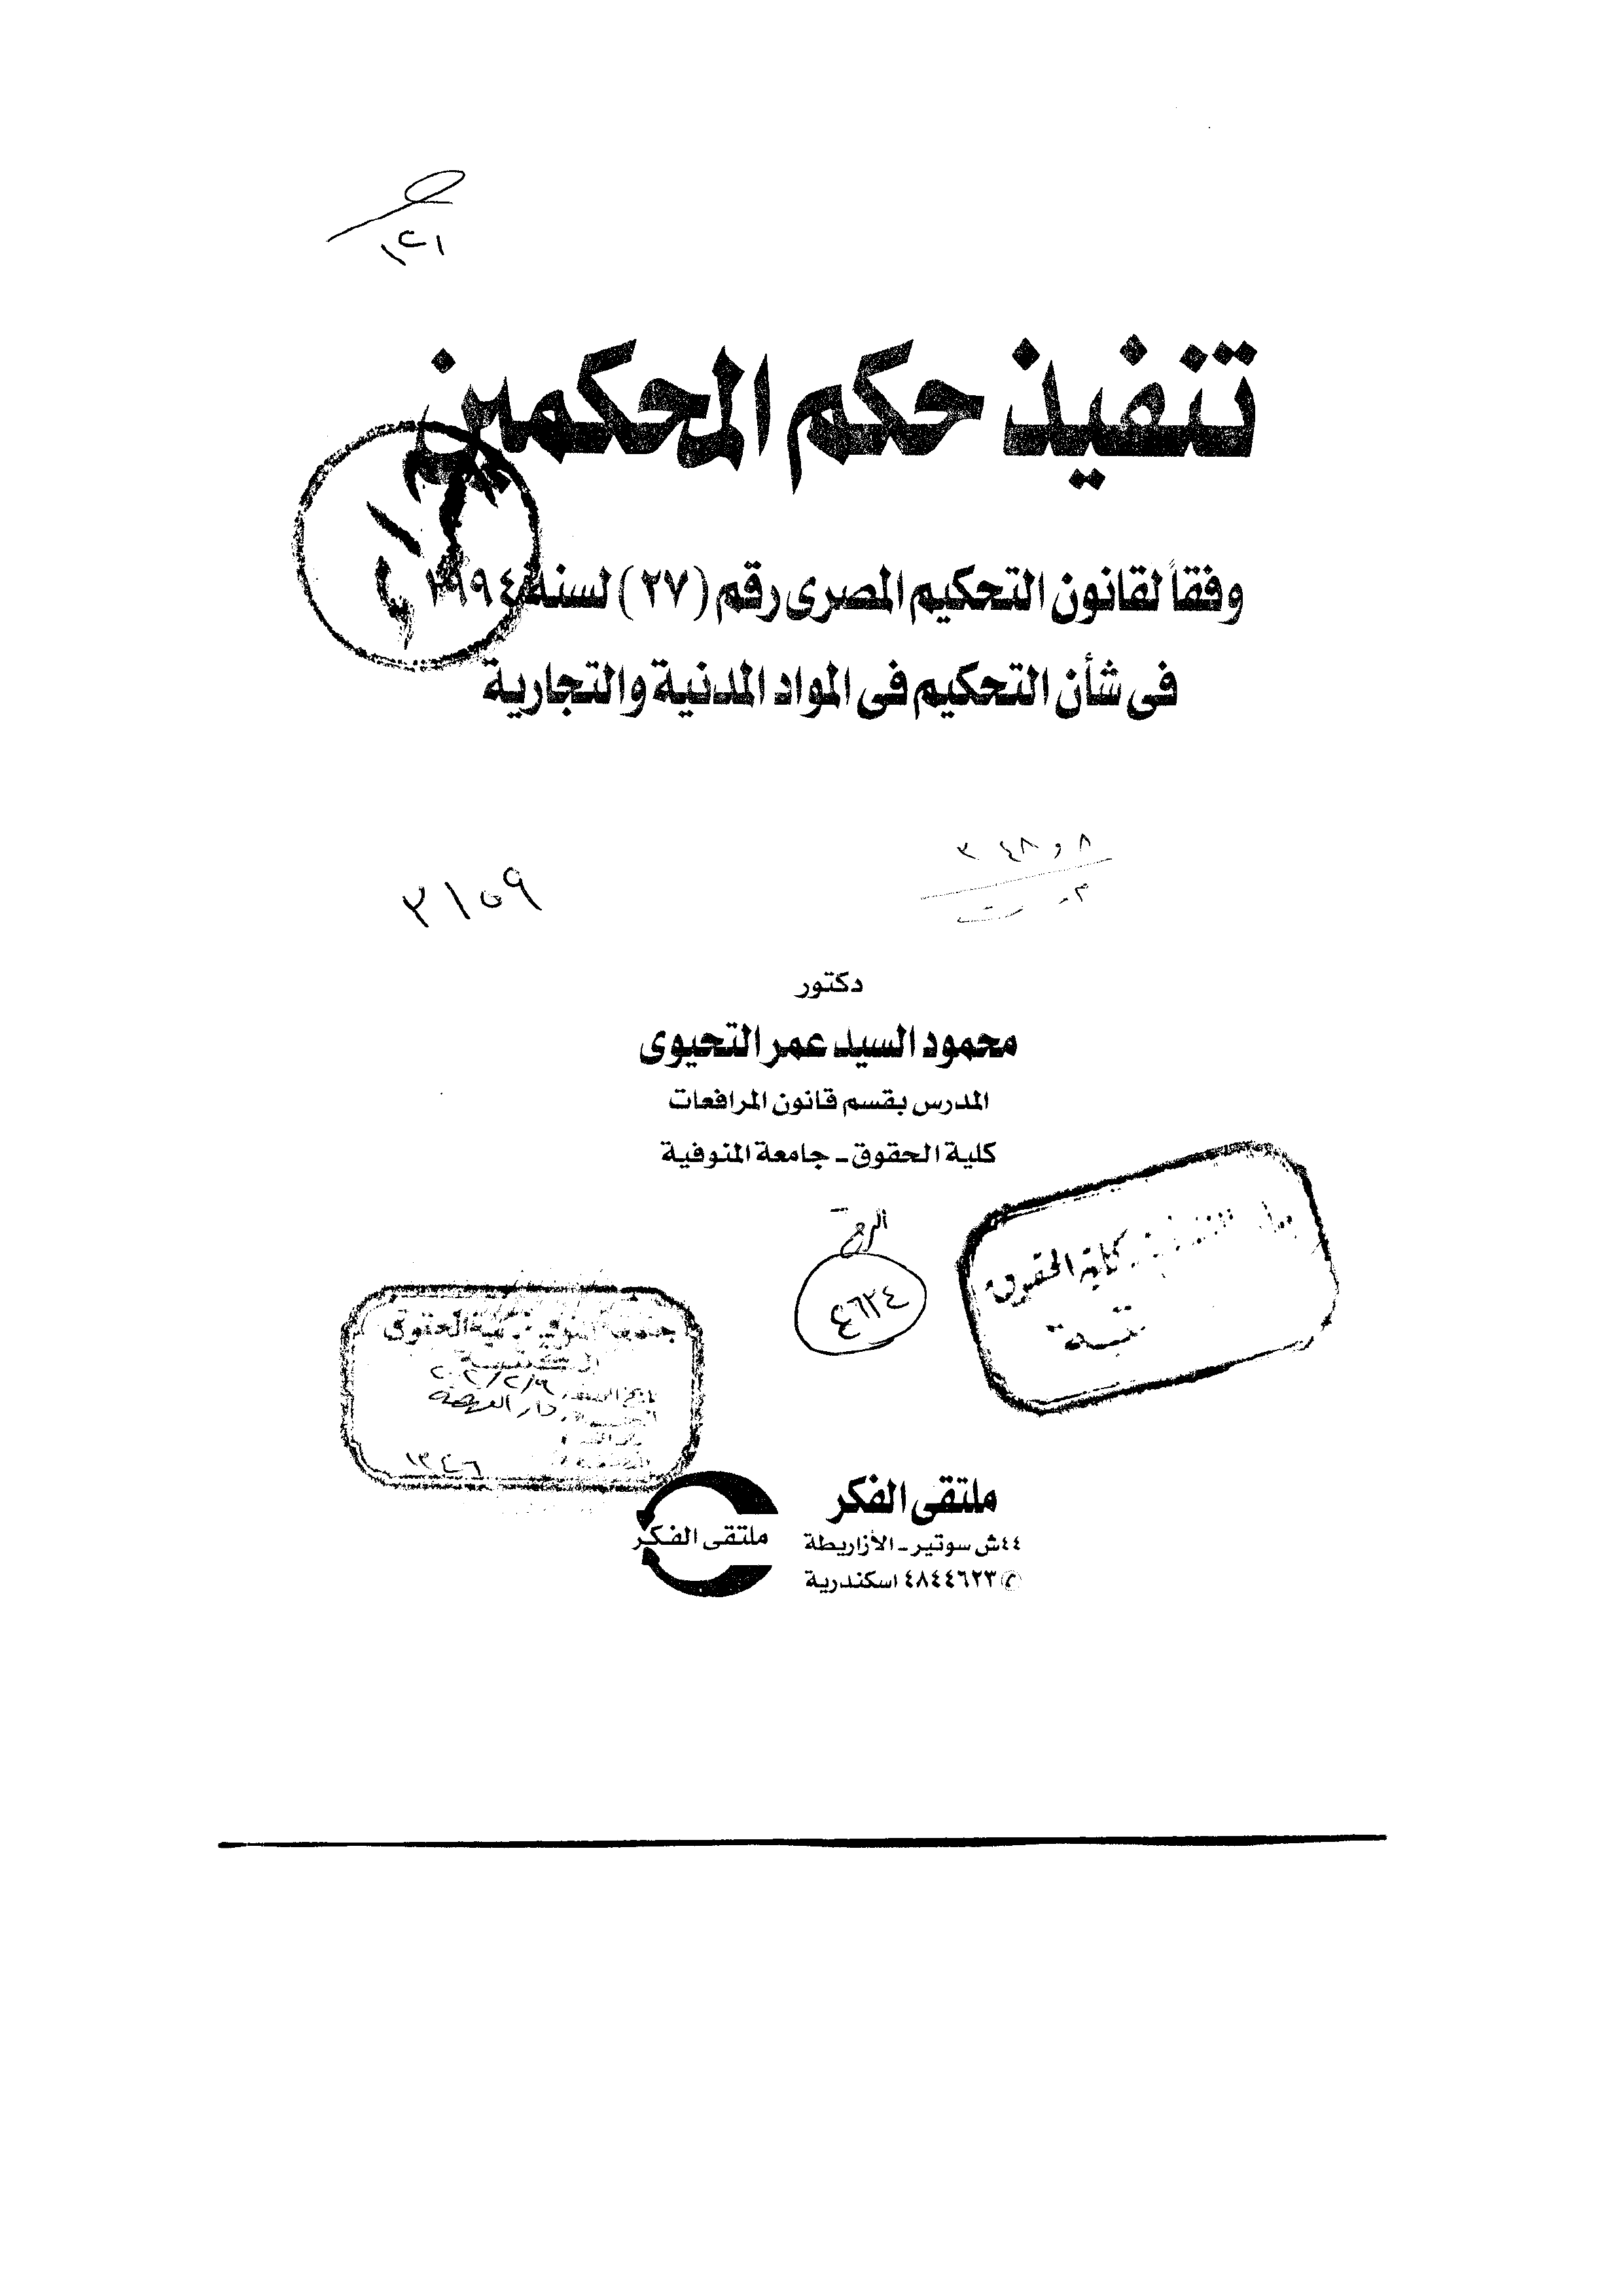 ١٢١
تنفيذ حكم المحكمين
وفقاً لقانون التحكيم المصرى رقم (٢٧) لسنة ١٩٩٤
فى شأن التحكيم فى المواد المدنية والتجارية
٣٤٨و٨
م. ت
٣١٥٩
دكتور
محمود السيد عمر التحيوى
المدرس بقسم قانون المرافعات
كلية الحقوق - جامعة المنوفية
٤٦٢٤
كلية الحقوق
كلية الحقوق
دار النهضة
١٣٤٦
ملتقى الفكر
٤٤ش سوتير - الأزاريطة
٤٨٤٤٦٢٣ اسكندرية
ملتقى الفكر